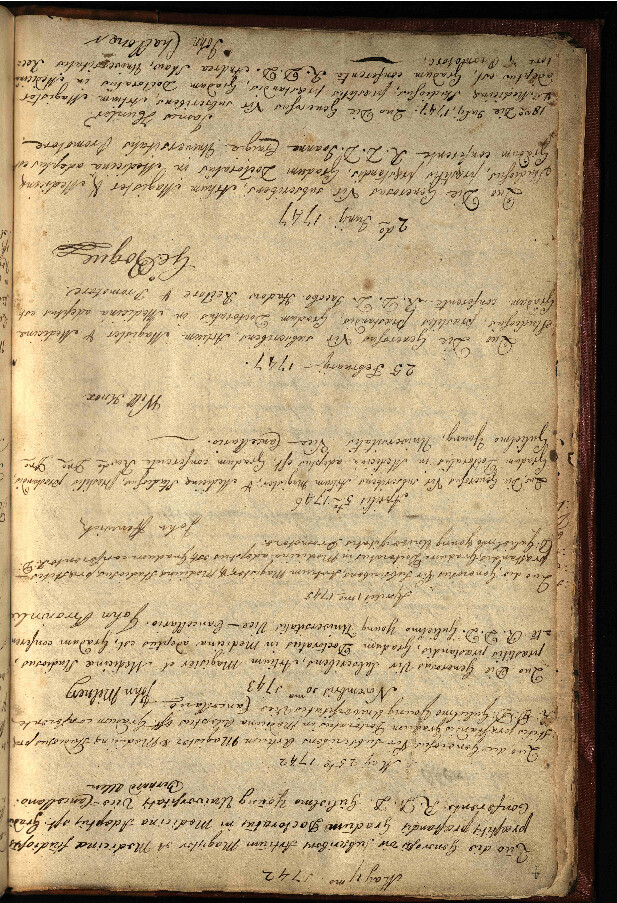 May 7mo 1742
Quo die generosus Vir Subscribens Artium Magister & Medicina Studiosus
præstitis præstandis Gradum Doctoratus in Medicina Adeptus est. Gradum
Conferente R. D. D. Gulielmo Young Universitatis Vice-Cancellario.
Allen
May 25to 1742
Quo die generosus Vir Subscribens Artium Magister & Medicina Studiosus
præstandis Gradum Doctoratus in Medicina Adeptus est Gradum conferente
R. D. D. Gulielmo Young Universitatis Vice Cancellario
John Milner
Novembris 1743
Quo Die Generosus Vir Subscribens, Artium Magister et Medicina Studiosus,
præstitis præstandis, Gradum Doctoratus in Medicina adeptus est, Gradum conferente
R. D. D. Gulielmo Young Universitatis Vice-Cancellario.
John Brownlie
1mo 1745
Quo die generosus Vir Subscribens Artium Magister, & Medicina Studiosus præstitis
præstandis Gradum Doctoratus in Medicina adeptus est Gradum conferente R. D.
D. Gulielmo Young Universitatis Promotore.
John
Aprilis 5to 1746
Quo Die Generosus Vir subscribens Artium Magister, & Medicina Studiosus, Præstitis præstandis
Gradum Doctoratus in Medicina adeptus est. Gradum conferente
Gulielmo Young, Universitatis Vice-Cancellario.
Will Knox
25 February - 1747.
Quo Die Generosus Vir subscribens Artium Magister & Medicina
Studiosus, præstitis Præstandis, Gradum Doctoratus in Medicina adeptus est
Gradum conferente R. D. D. Jacobo Hadow Rectore & Promotore.
Ge: Bogue
2do Junij. 1747
Quo Die Generosus Vir subscribens, Artium Magister & Medicina
Studiosus, præstitis præstandis Gradum Doctoratus in Medicina adeptus est
Gradum conferente R. D. D. Joanne Craigie Universitatis Promotore.
James Hunter
18vo Die July, 1747. Quo Die Generosus Vir subscribens Artium Magister
& Medicina Studiosus, præstitis præstandis, Gradum Doctoratus in Medicina
adeptus est, Gradum conferente R. D. D. Andrea Shaw, Universitatis Rec-
tore & Promotore.
John Challoner